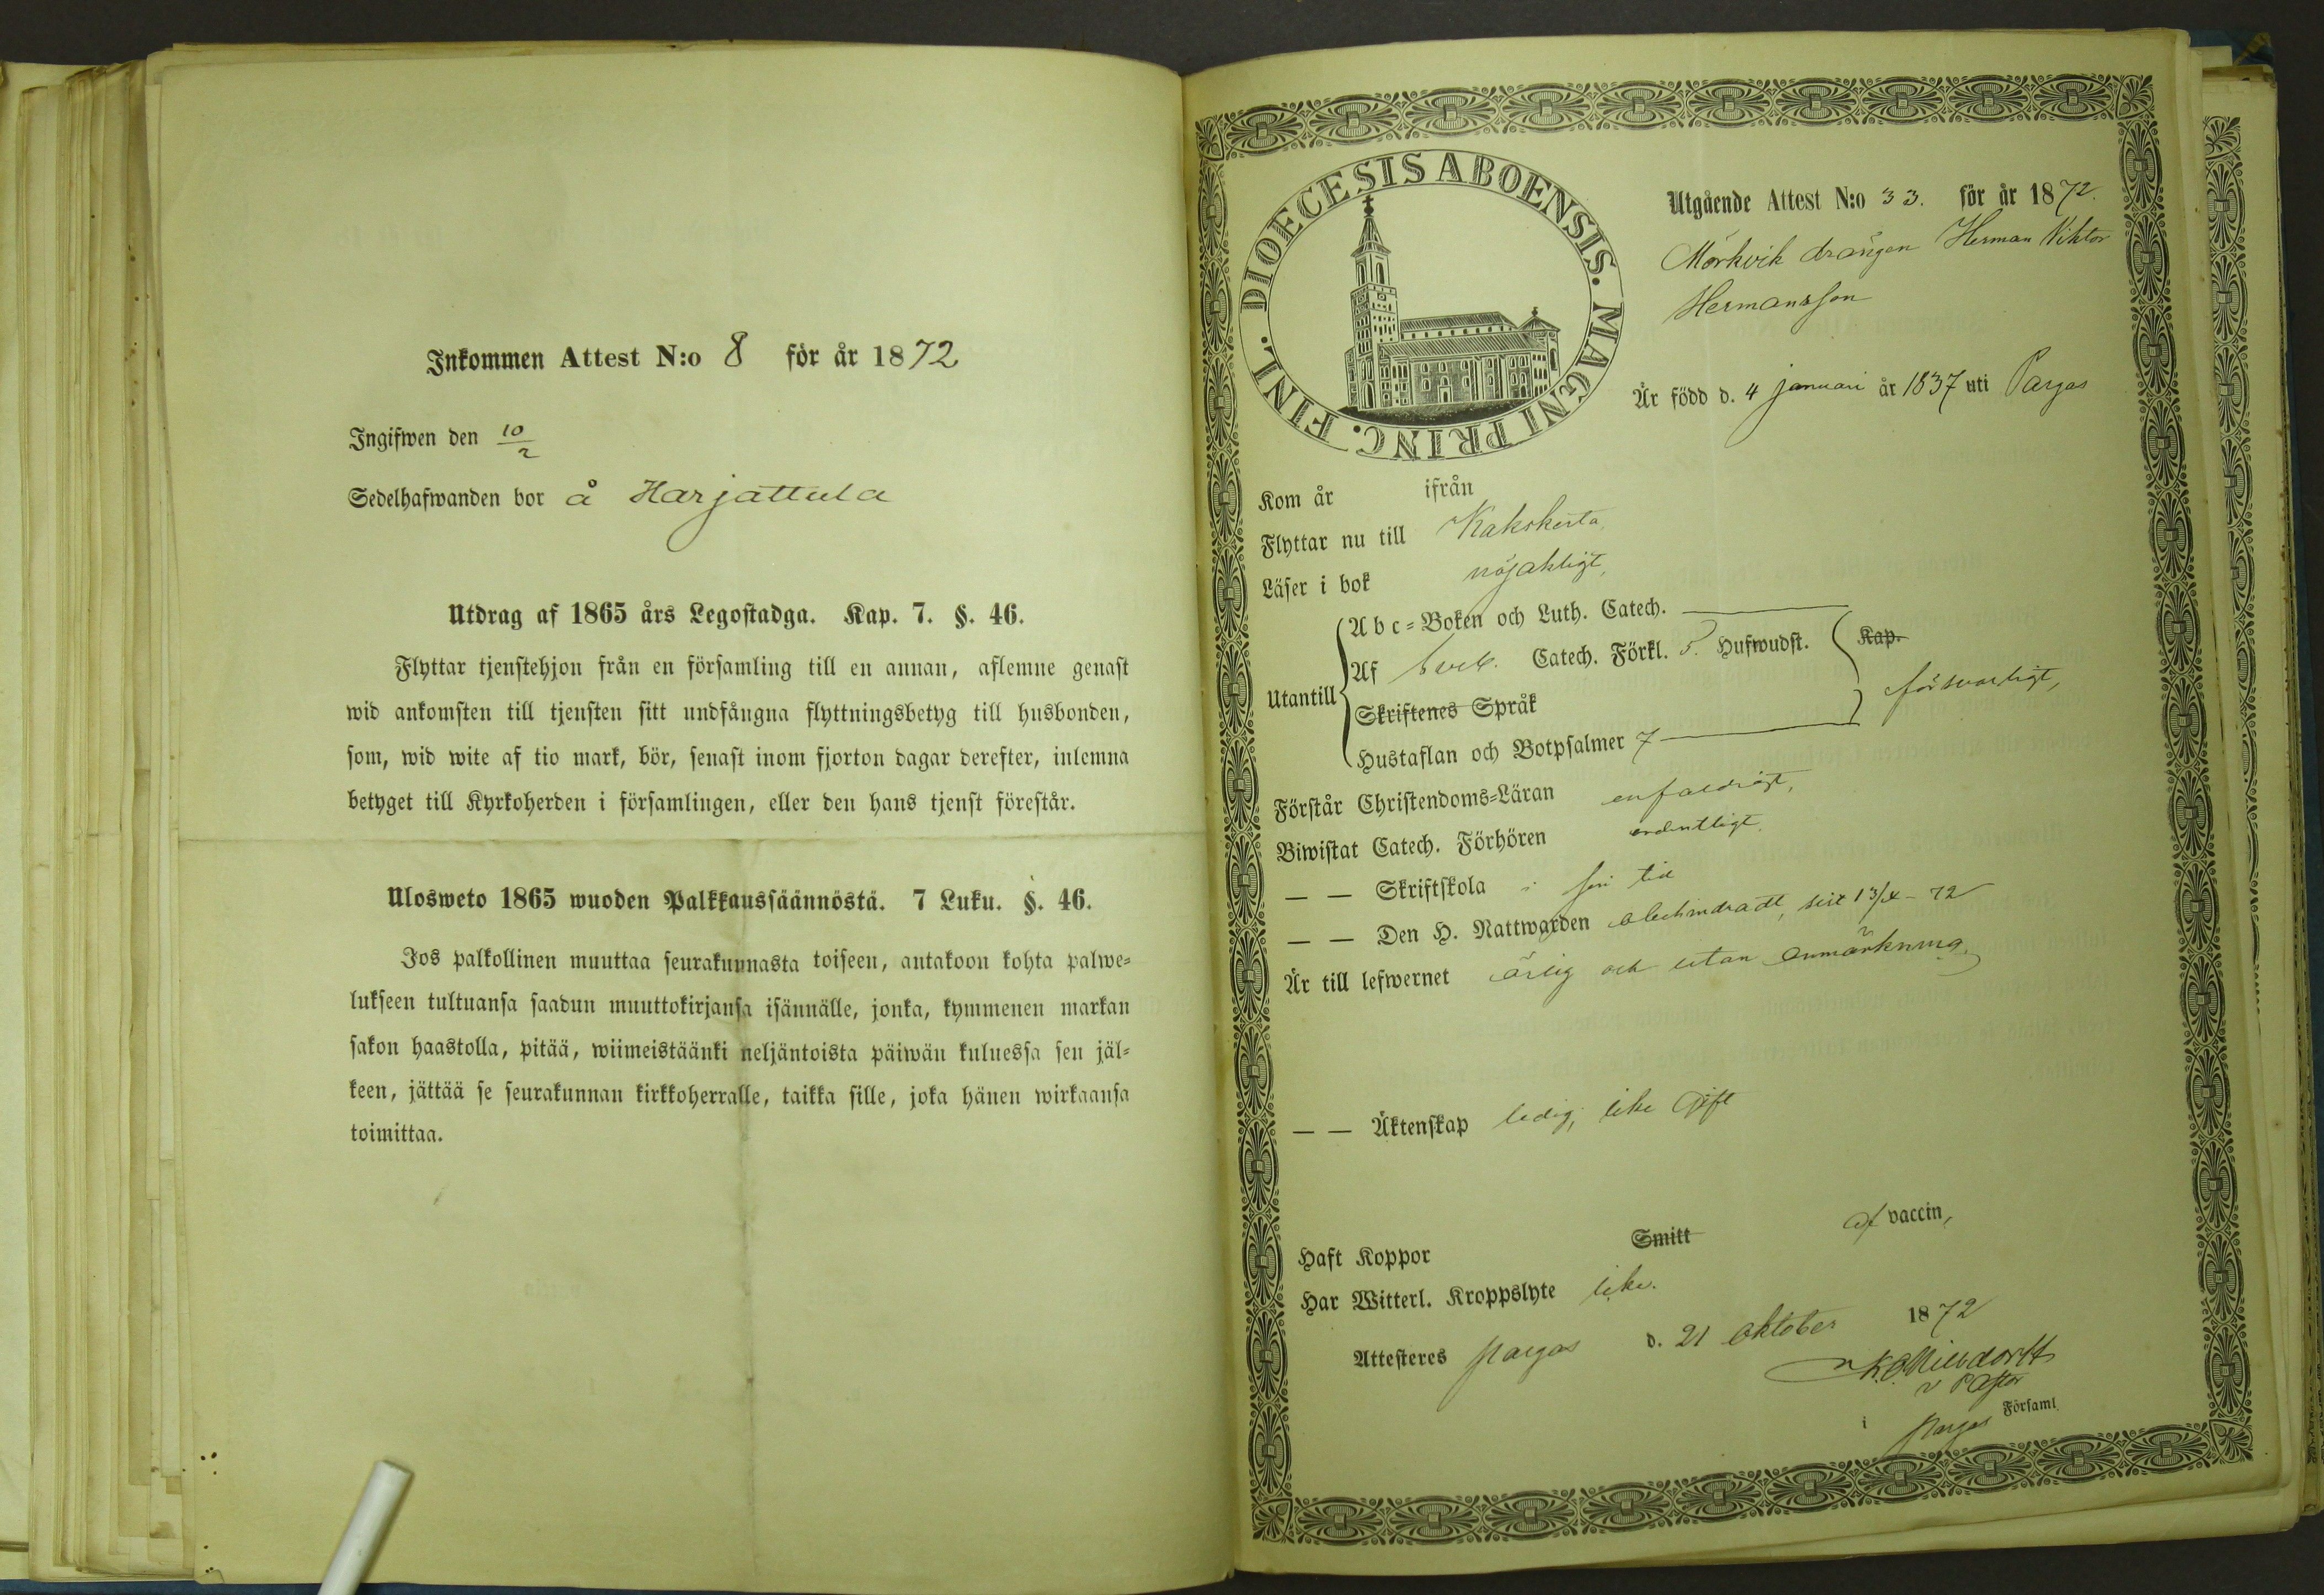 Inkommen Attest N:o 8 för år 1872
Ingifwen den 10/2
Sedelhafwanden bor å Harjattula
Utdrag af 1865 års Legostadga. Kap. 7. §. 46.
Flyttar tjenstehjon från en församling till en annan, aflemne genast
wid ankomsten till tjensten sitt undfångna flyttningsbetyg till husbonden,
som, wid wite af tio mark, bör, senast inom fjorton dagar derefter, inlemna
betyget till Kyrkoherden i församlingen, eller den hans tjenst förestår.
Ulosweto 1865 wuoden Palkkaussäännöstä. 7 Luku. §. 46.
Jos palkollinen muuttaa seurakunnasta toiseen, antakoon kohta palwe=
lukseen tultuansa saadun muuttokirjansa isännälle, jonka, kymmenen markan
sakon haastolla, pitää, wiimeistäänki neljäntoista päiwän kuluessa sen jäl=
keen, jättää se seurakunnan kirkkoherralle, taikka sille, joka hänen wirkaansa
toimittaa.
DIOECESIS ABOENSIS. MAGNI PRINC. FINL.
Utgående Attest N:o 33. för år 1872.
Mörkvik drängen Herman Viktor
Hermansson
Är född d. 4 januari år 1837 uti Pargas
Kom år ifrån
Flyttar nu till Kakskerta,
Läser i bok nöjaktigt,
Utantill
Abc=Boken och Luth. Catech.
Af Catech. Förkl. 5. Hufwudst. Kap.
Skriftenes Språk
Hustaflan och Botpsalmer 7
försvarligt,
Förstår Christendoms=Läran enfaldigt,
Biwistat Catech. Förhören ordentligt.
— — Skriftskola i sin tid
— — Den H. Nattwarden obehindradt, sist 13/X - 72
Är till lefwernet ärlig och utan anmärkning.
— — Äktenskap ledig, icke gift
Haft Koppor Smitt af vaccin,
Har Witterl. Kroppslyte icke.
Attesteres Pargas d. 21 oktober 1872
v Pastor
i Pargas Församl.